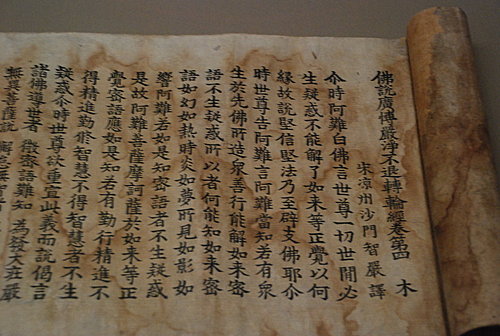 佛說廣博嚴淨不退轉輪經卷第四 木
宋涼州沙門智嚴譯
尒時阿難白佛言世尊一切世間必
生疑惑不能解了如来等正覺以何
緣故說堅信堅法乃至辟支佛耶尒
時世尊告阿難言阿難當知若有衆
生於先佛所造衆善行能解如来密
語不生疑惑所以者何能知如来密
語如幻如熱時炎如夢所見如影如
嚮阿難若如是知密語者不生疑惑
是故阿難菩薩摩訶薩於如来等正
覺密語應如是知若有勤行精進不
得精進勤修智慧不得智慧者不生
疑惑尒時世尊欲重宣此義而說偈言
諸佛導世者 微密語難知 為發大莊嚴
菩薩說